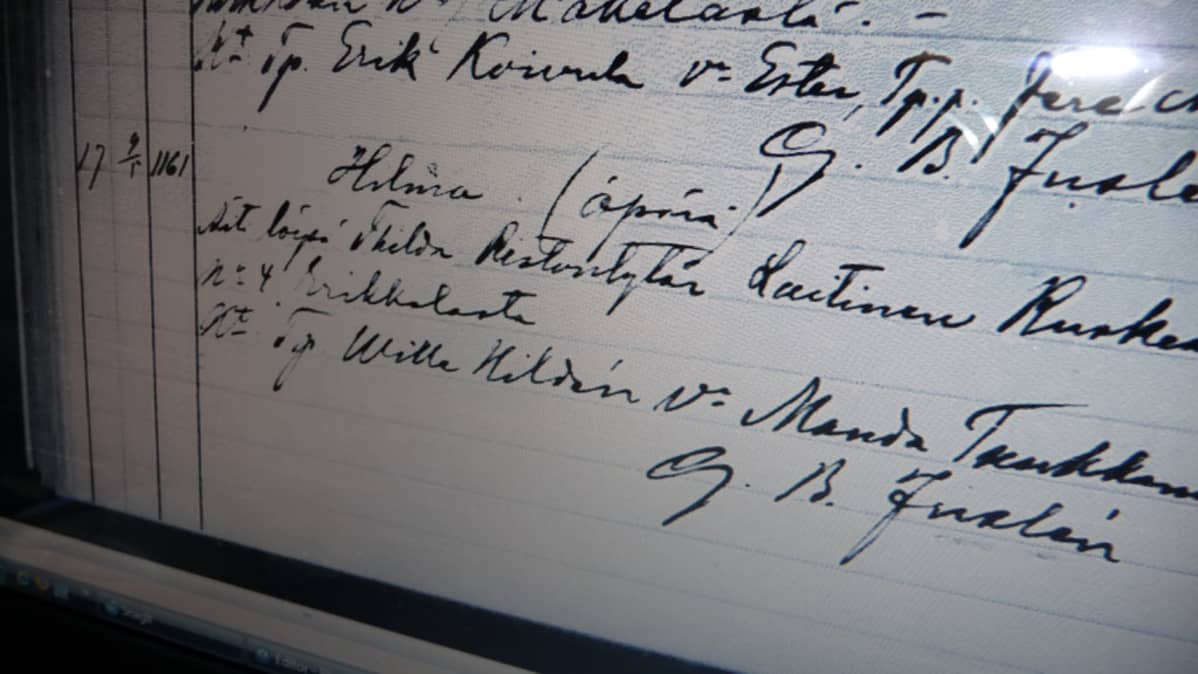 Mäkelästä. –
Kt Tp. Erik Koivula va Ester, Tp.p.
G. B. Jusle
17 9/5 1161 Hilma. (äpärä)
Äit löysi Thilda Ristontytär Laitinen Ruske
No 4 Erikkalasta
Kt Tp Wille Hildén va Manda Tuukkan
G. B. Juslén